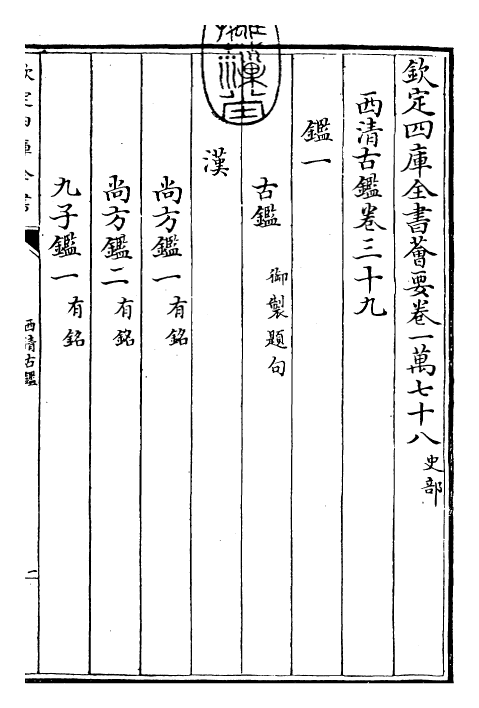 欽定四庫全書薈要卷一萬七十八 史部
西清古鑑卷三十九
鑑一
古鑑 御製題句
漢
尚方鑑一 有銘
尚方鑑二 有銘
九子鑑一 有銘
欽定四庫全書
西清古鑑
一